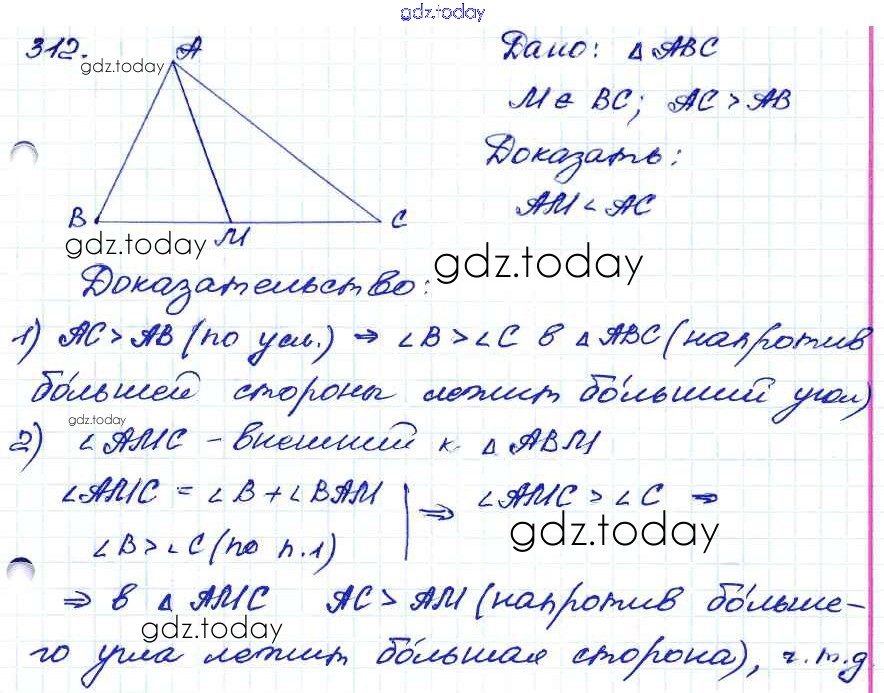 gdz.today
312.
gdz.today
A
B
M
C
Дано: △ ABC
M ∈ BC; AC > AB
Доказать:
AM < AC
gdz.today
gdz.today
Доказательство:
1) AC > AB (по усл.) ⇒ ∠B > ∠C в △ ABC (напротив
бо́льшей стороны лежит бо́льший угол)
gdz.today
2) ∠AMC – внешний к △ ABM
∠AMC = ∠B + ∠BAM | ⇒ ∠AMC > ∠C ⇒
∠B > ∠C (по п.1)
gdz.today
⇒ в △ AMC AC > AM (напротив бо́льше-
gdz.today
го угла лежит бо́льшая сторона), ч.т.д